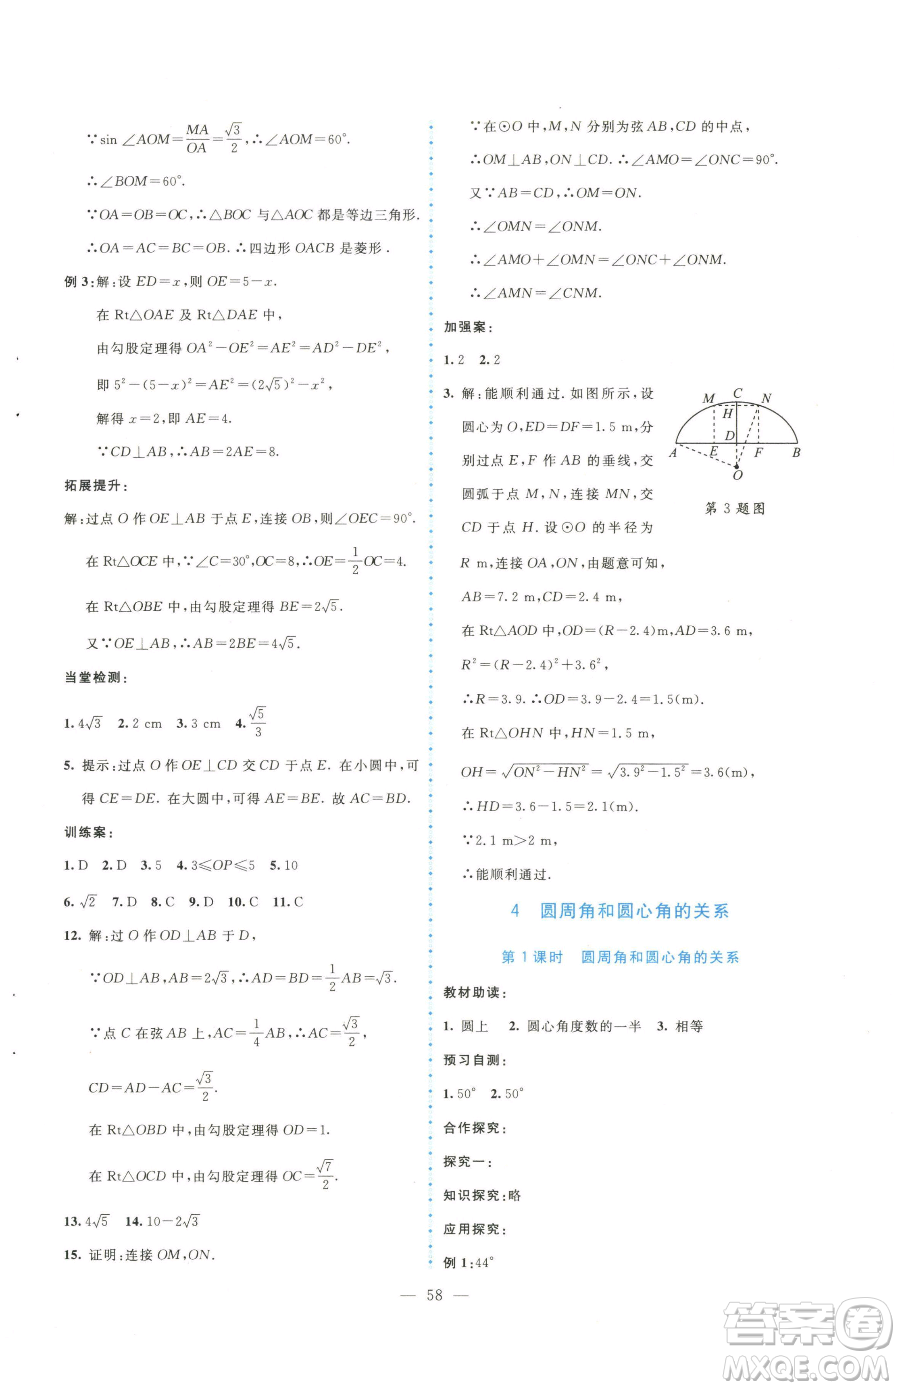 ∵sin ∠AOM=MA/OA=√3/2,∴∠AOM=60°.
∴∠BOM=60°.
∵OA=OB=OC,∴△BOC 与△AOC 都是等边三角形.
∴OA=AC=BC=OB.∴四边形 OACB 是菱形.
例 3:解:设 ED=x,则 OE=5-x.
在 Rt△OAE 及 Rt△DAE 中,
由勾股定理得 OA²-OE²=AE²=AD²-DE².
即 5²-(5-x)²=AE²=(2√5)²-x²,
解得 x=2,即 AE=4.
∵CD⊥AB,∴AB=2AE=8.
拓展提升:
解:过点 O 作 OE⊥AB 于点 E,连接 OB,则∠OEC=90°.
在 Rt△OCE 中,∵∠C=30°,OC=8,∴OE=1/2OC=4.
在 Rt△OBE 中,由勾股定理得 BE=2√5.
又∵OE⊥AB,∴AB=2BE=4√5.
当堂检测:
1. 4√3 2. 2 cm 3. 3 cm 4. √5/3
5. 提示:过点 O 作 OE⊥CD 交 CD 于点 E. 在小圆中,可
得 CE=DE. 在大圆中,可得 AE=BE. 故 AC=BD.
训练案:
1. D 2. D 3. 5 4. 3≤OP≤5 5. 10
6. √2 7. D 8. C 9. D 10. C 11. C
12. 解:过 O 作 OD⊥AB 于 D,
∵OD⊥AB,AB=2√3,∴AD=BD=1/2AB=√3.
∵点 C 在弦 AB 上,AC=1/4AB,∴AC=√3/2,
CD=AD-AC=√3/2.
在 Rt△OBD 中,由勾股定理得 OD=1.
在 Rt△OCD 中,由勾股定理得 OC=√7/2.
13. 4√5 14. 10-2√3
15. 证明:连接 OM,ON.
∵在⊙O 中,M,N 分别为弦 AB,CD 的中点,
∴OM⊥AB,ON⊥CD.∴∠AMO=∠ONC=90°.
又∵AB=CD,∴OM=ON.
∴∠OMN=∠ONM.
∴∠AMO+∠OMN=∠ONM+∠CNO.
∴∠AMN=∠CNM.
加强案:
1. 2 2. 2
3. 解:能顺利通过. 如图所示,设
圆心为 O,ED=DF=1.5 m,分
别过点 E,F 作 EF 的垂线,交
圆弧于点 M,N,连接 MN,交
CD 于点 H. 设⊙O 的半径为
R m,连接 OA,ON,由题意可知,
M C N
H
D
A E F B
O
第 3 题图
AB=7.2 m,CD=2.4 m,
在 Rt△AOD 中,OD=(R-2.4)m,AD=3.6 m,
R²=(R-2.4)²+3.6²,
∴R=3.9.∴OD=3.9-2.4=1.5(m).
在 Rt△OHN 中,HN=1.5 m,
OH=√ON²-HN²=√3.9²-1.5²=3.6(m)
∴HD=3.6-1.5=2.1(m).
∵2.1 m>2 m,
∴能顺利通过.
4 圆周角和圆心角的关系
第 1 课时 圆周角和圆心角的关系
教材助读:
1. 圆上 2. 圆心角度数的一半 3. 相等
预习自测:
1. 50° 2. 50°
合作探究:
探究一:
知识探究:略
应用探究:
例 1:44°
— 58 —
答案圈
MXQE.COM